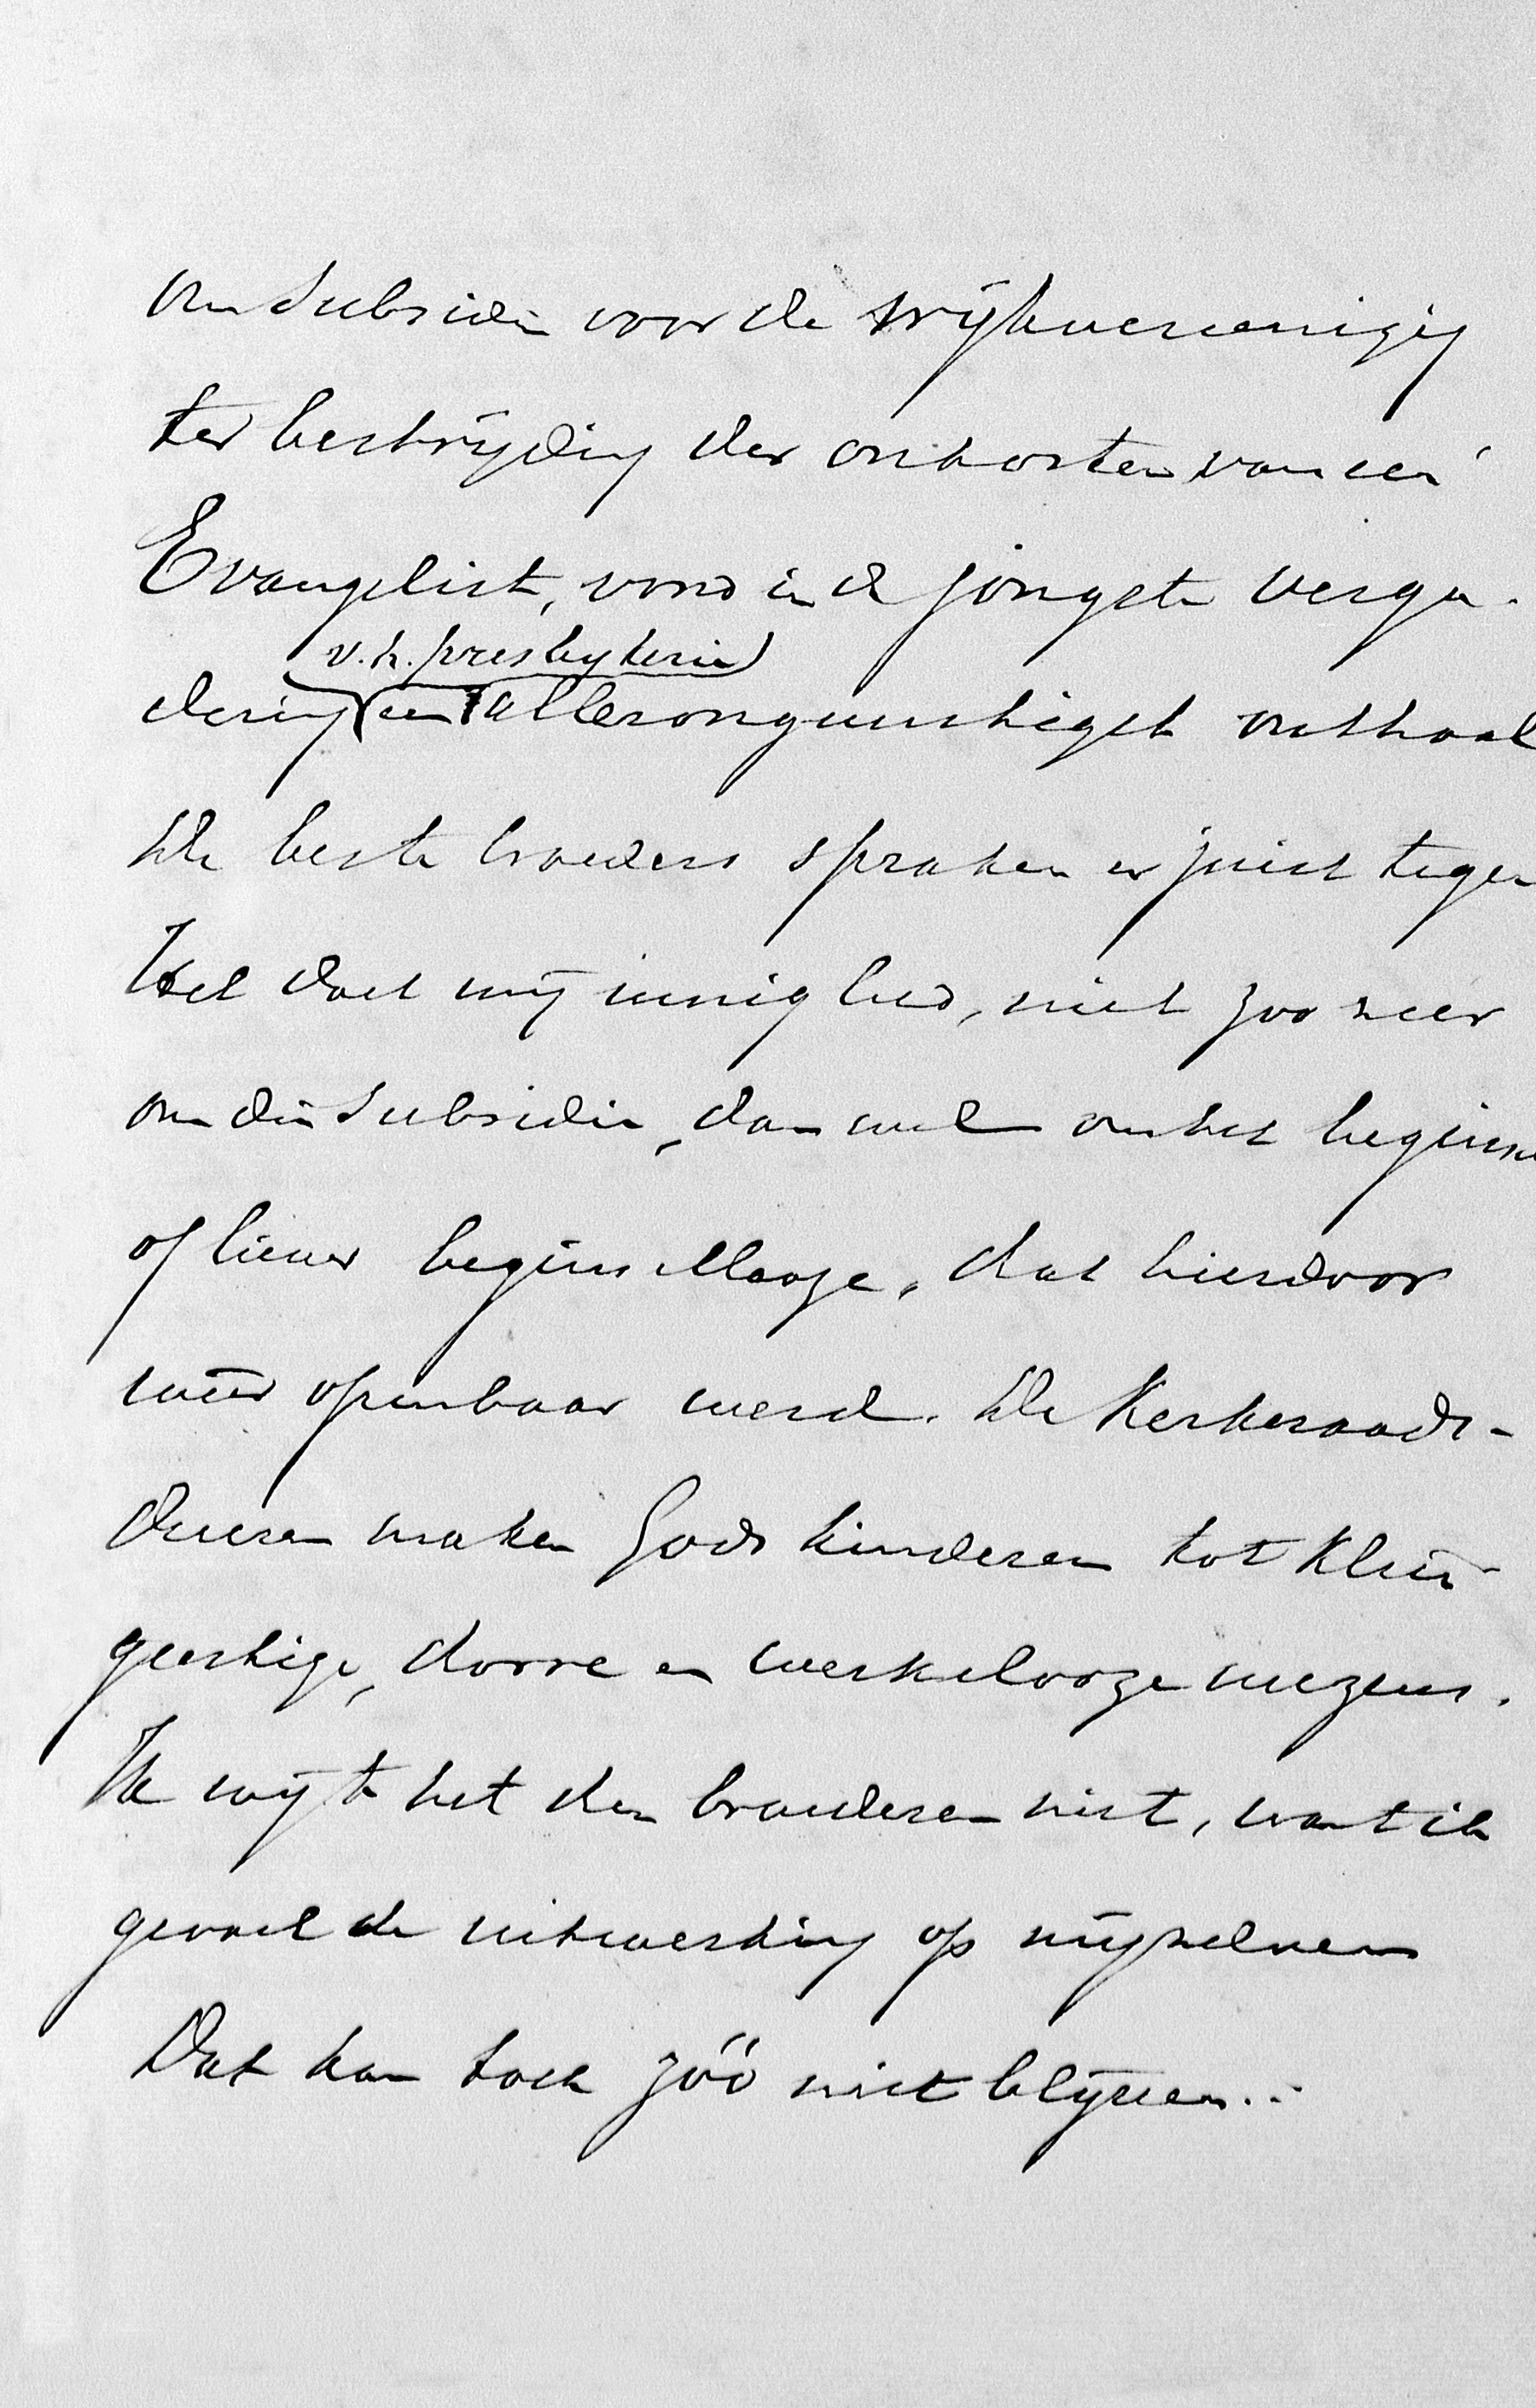 om subsidie voor de wijkvereeniging
ter bestrijding der onkosten van een
Evangelist, vond in de jongste verga-
v.h. presbyterie
dering een allerongunstigst onthaal
De beste broeders spraken er juist tegen
Het doet mij innig leed, niet zoo zeer
om die subsidie, dan wel om het beginse
of liever beginsellooze, dat hierdoor
weer openbaar werd. De Kerkeraads-
deuren maken Gods kinderen tot klein-
geestige, dorre en werkelooze wezens.
Ik wijt het den broederen niet, want ik
gevoel de uitwerking op mijzelven
Dat kan toch zóó niet blijven..